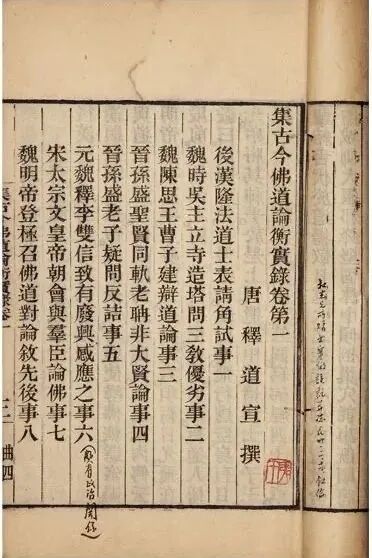 集古今佛道論衡實錄卷第一
唐釋道宣撰
後漢隆法道士表請角試事一
魏時吳主立寺造塔問三敎優劣事二
魏陳思王曹子建辯道論事三
晉孫盛聖賢同軌老聃非大賢論事四
晉孫盛老子疑問反詰事五
元魏釋李雙信致有廢興感應之事六
頗有政治関係
宋太宗文皇帝朝會與羣臣論佛事七
魏明帝登極召佛道對論敘先後事八
集古今佛道論衡實錄卷一
曲四